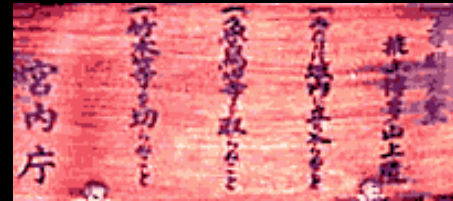 上陵
一みだりに域内に立ち入らぬこと
一魚鳥等を取らぬこと
一竹木等を切らぬこと
宮内庁